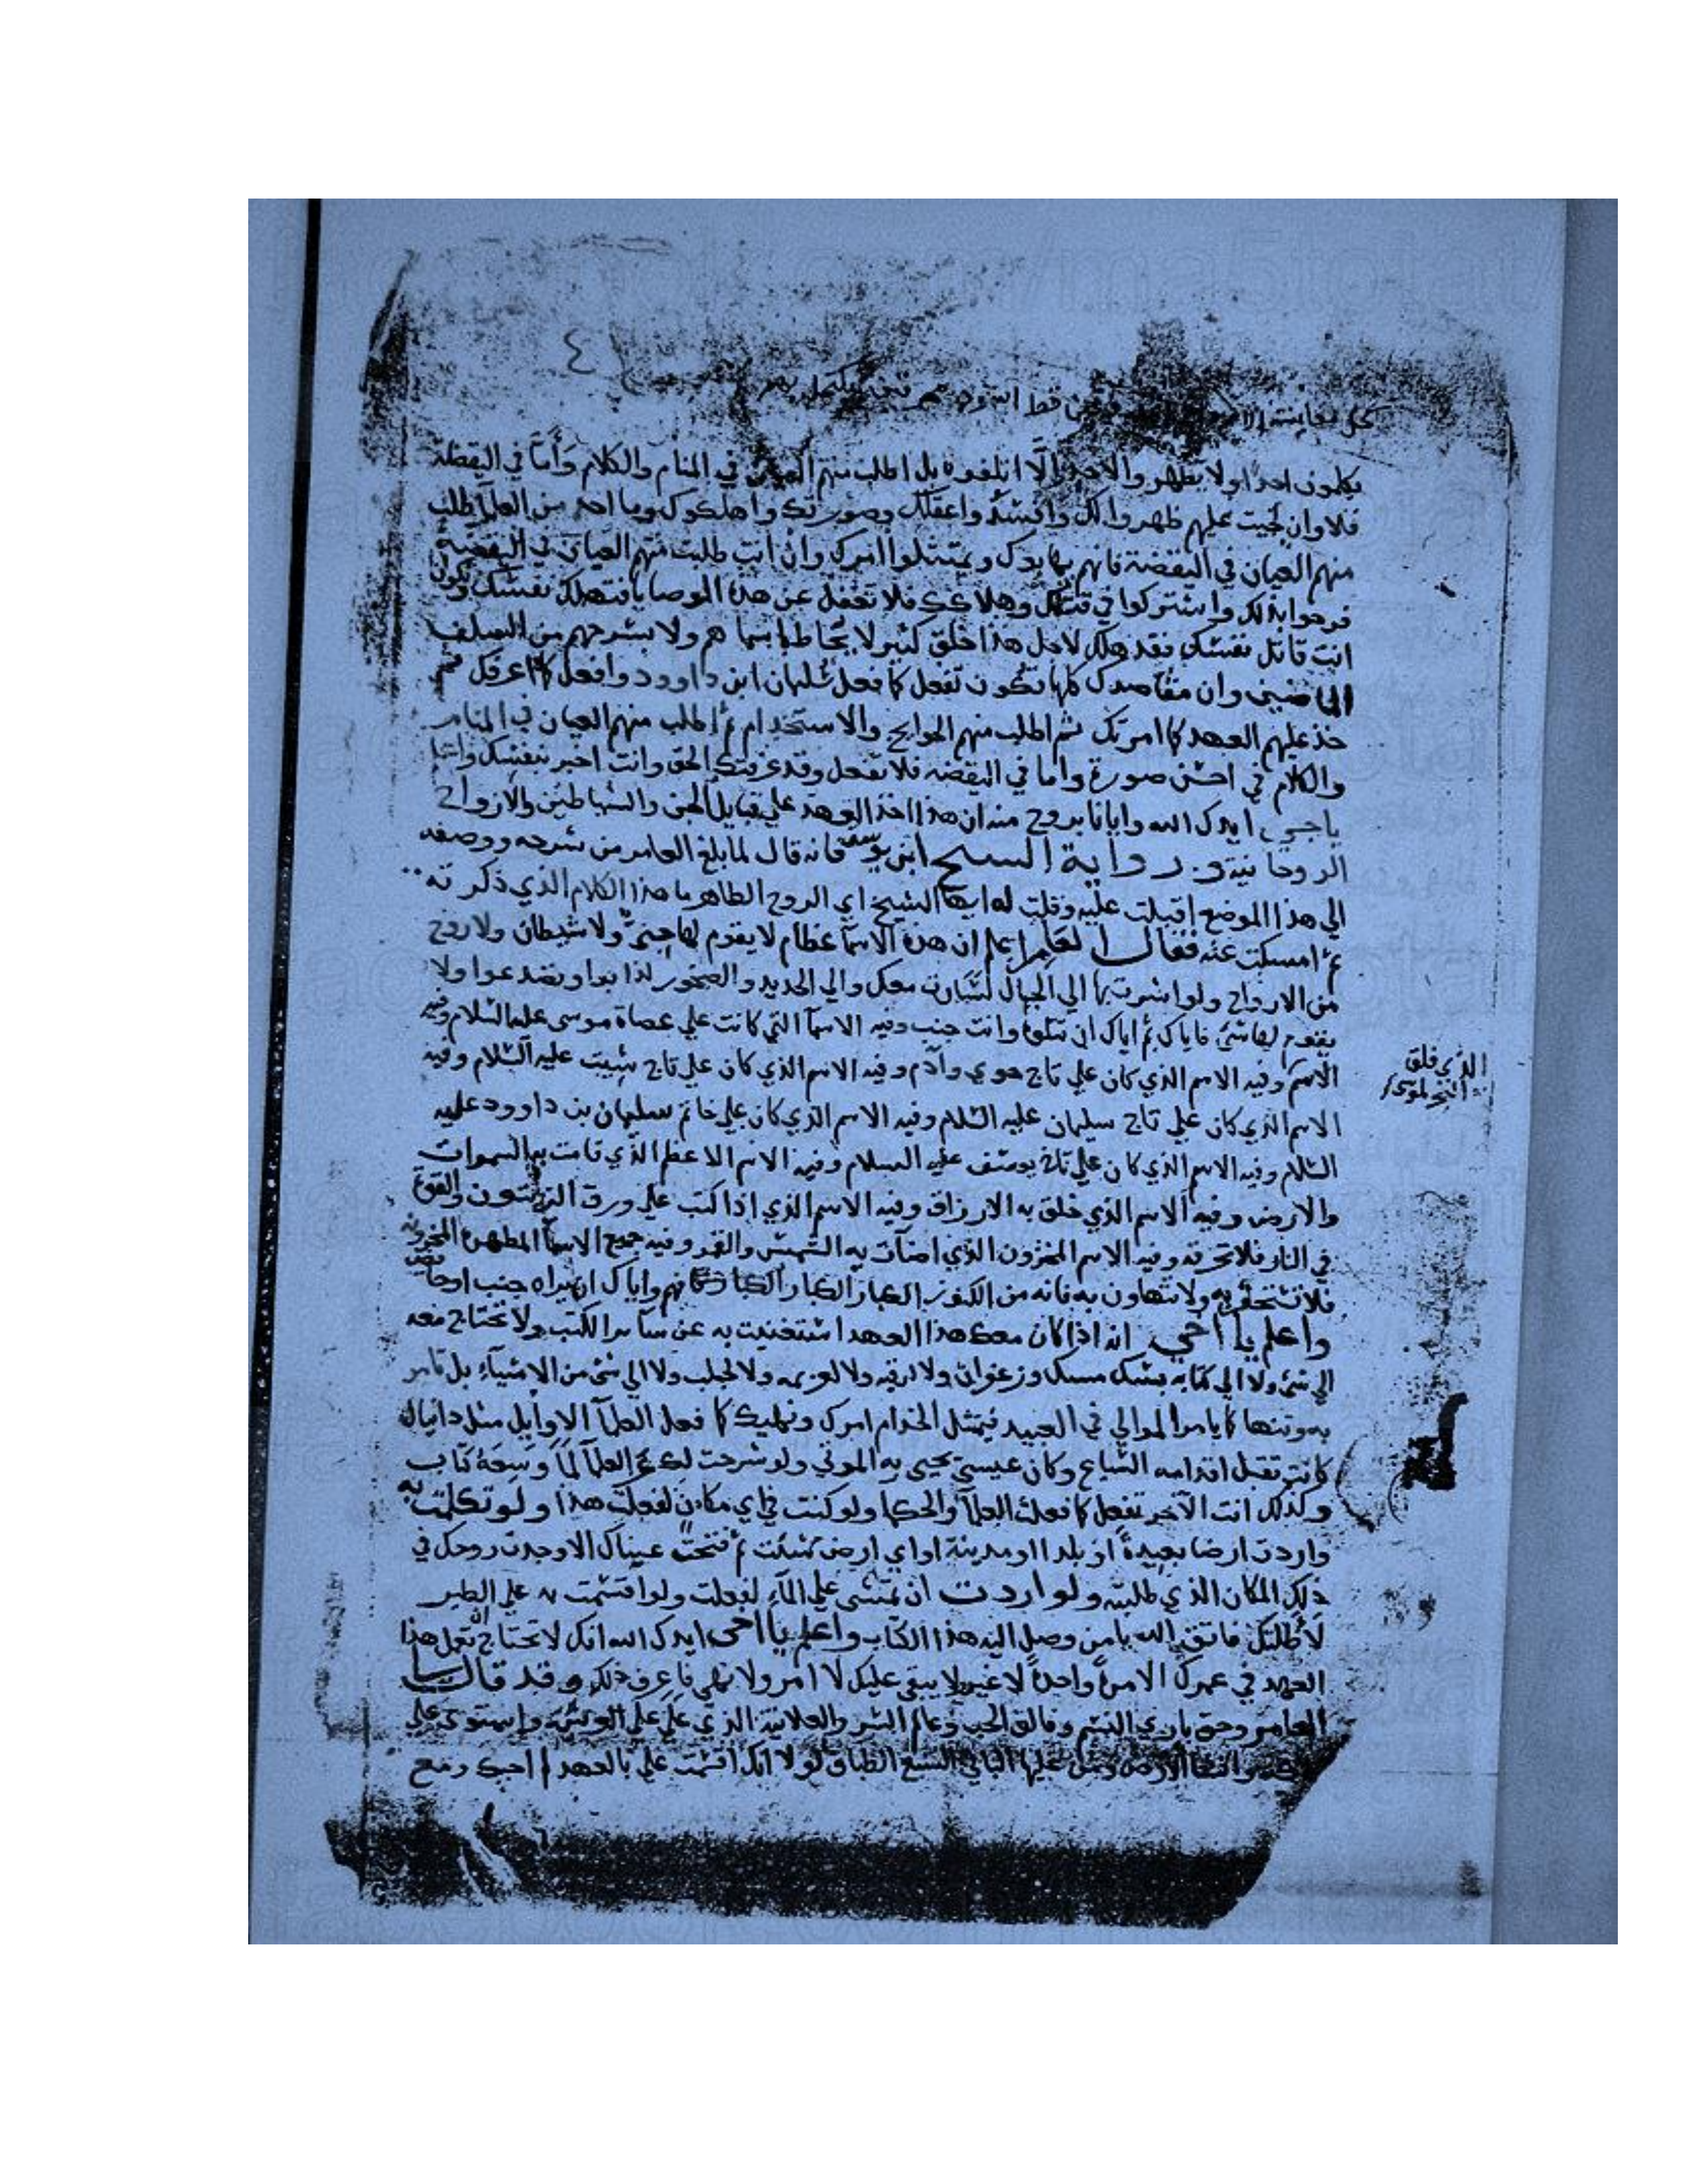 ٤
يكلمون احدا ولا يظهروا لاحد والا اتلفوه بل اطلب منهم العيان في المنام والكلام وأما في اليقظة
فلا وان لجيت عليهم ظهروا لك وافسدوا عقلك وصورتك واهلكوك وما احد من العلمآ طلب
منهم العيان في اليقضة فانهم يمتثلوا امرك وان انت طلبت منهم العيان في اليقضة
فرحوا بذلك واشتركوا في قتلك وهلاكك فلا تغفل عن هذه الوصايا فتهلك نفسك وتكون
انت قاتل نفسك فقد هلك لاجل هذا خلق كثير لا يحاط باسماهم ولا بشرحهم من السلف
الماضيين وان مقاصدك كلها تكون تفعل كما فعل سليمان ابن داوود وافعل كما اعرفك ثم
خذ عليهم العهد كما امرتك ثم اطلب منهم الحوايج والاستخدام ثم اطلب منهم العيان في المنام
والكلام في احسن صورة واما في اليقضه فلا تفعل وقد عرفتك الحق وانت اخبر بنفسك واعلم
يا اخي ايدك الله وايانا بروح منه ان هذا اخذ العهد علي قبايل الجن والشياطين والارواح
الروحانية و رواية الشيخ ابن يوسف فانه قال لما بلغ العامر من شرحه ووصفه
الي هذا الموضع اقبلت عليه وقلت له ايها الشيخ اي الروح الطاهر ما هذا الكلام الذي ذكرته
ثم امسكت عنه فقال العامر اعلم ان هذه الاسمآ عظام لا يقوم لها جني ولا شيطان ولا روح
من الارواح ولو اشرت بها الي الجبال لسارت معك والي الحديد والصخور لذابوا وتصدعوا ولا
يقوم لها شئ فاياك ثم اياك ان تتلوها وانت جنب وفيه الاسمآ التي كانت علي عصاة موسى عليه السلام وفيه
الاسم وفيه الاسم الذي كان علي تاج حوي وآدم وفيه الاسم الذي كان علي تاج شيت عليه السلام وفيه
الذي فلق
البحر لموسى
الاسم الذي كان علي تاج سليمان عليه السلام وفيه الاسم الذي كان علي خاتم سليمان بن داوود عليه
السلام وفيه الاسم الذي كان علي تاج يوسف عليه السلام وفيه الاسم الاعظم الذي قامت به السموات
والارض وفيه الاسم الذي خلق به الارزاق وفيه الاسم الذي اذا كتب علي ورق الزيتون والقوه
في النار فلا تحرقه وفيه الاسم المخزون الذي اضآت به الشمس والقمر وفيه جميع الاسمآ المطهرة المخزونه
فلا تستحقر به ولا تتهاون به فانه من الكنوز الكبار الكبار الكبار فافهم واياك ان يراه جنب او حايض
واعلم يا اخي انه اذا كان معك هذا العهد استغنيت به عن سآير الكتب ولا تحتاج معه
الي شئ ولا الي كتابه بسك مسك وزعفران ولا لرقيه ولا لعزيمه ولا لجلب ولا الي شئ من الاشيآء بل تامر
به وتنها كما يامر الموالي في العبيد فيمتثل الخدام امرك ونهيك كما فعل العلمآ الاوايل مثل دانيال
كانت تقبل اقدامه السباع وكان عيسى يحيى به الموتي ولو شرحت لك عن العلمآ لما وسعه كتاب
وكذلك انت الآخر تفعل كما فعلت العلمآ والحكما ولو كنت في اي مكان لفعلت هذا ولو تكلمت به
واردت ارضا بعيدة او بلدا او مدينة او اي ارض شئت ثم فتحت عيناك الا وجدت روحك في
ذلك المكان الذي طلبته ولو اردت ان تمشى علي المآء لفعلت ولو اقسمت به علي الطير
لأظلتك فاتق الله يا من وصل اليه هذا الكتاب واعلم يا اخي ايدك الله انك لا تحتاج تعمل هذا
العهد في عمرك الا مرة واحدة لا غير ولا يبقى عليك لا امر ولا نهي فاعرف ذلك وقد قال
العامر وحق باري النسم وفالق الحب وعالم السر والعلانية الذي علي علي العرش واستوى علي
الارض السبع الطباق لولا انك اقسمت علي بالعهد احبك ومع